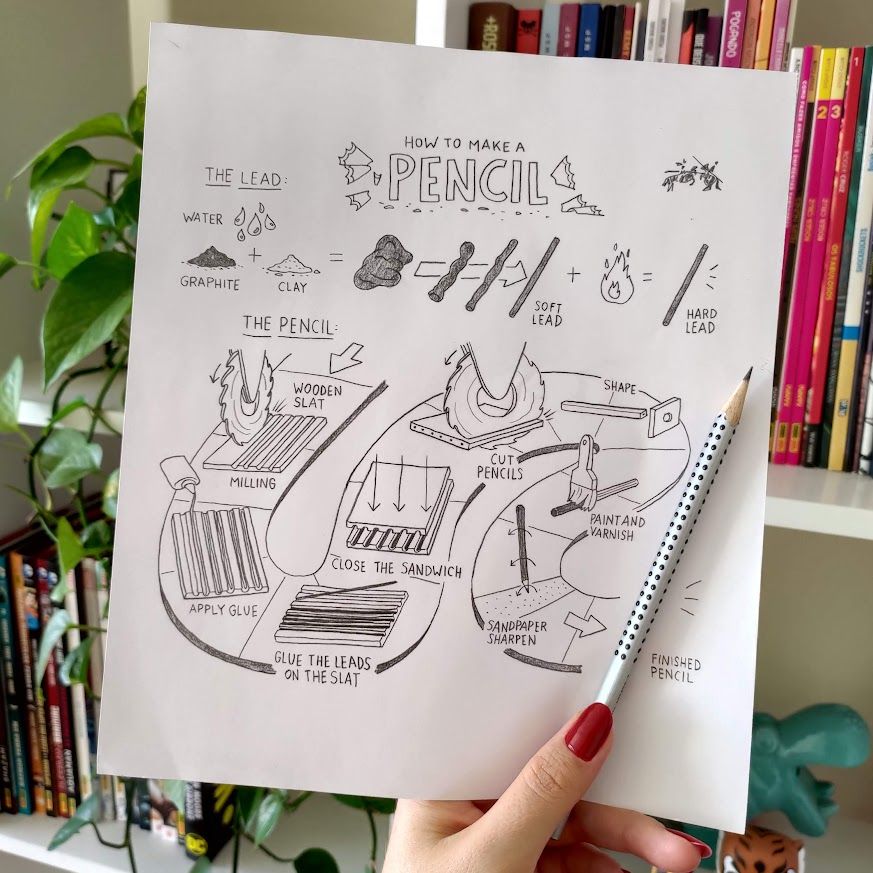 HOW TO MAKE A
PENCIL
THE LEAD:
WATER
GRAPHITE
CLAY
SOFT
LEAD
HARD
LEAD
THE PENCIL:
WOODEN
SLAT
MILLING
APPLY GLUE
GLUE THE LEADS
ON THE SLAT
CLOSE THE SANDWICH
CUT
PENCILS
SHAPE
PAINT AND
VARNISH
SANDPAPER
SHARPEN
FINISHED
PENCIL
POCANDO
2
3
1
OS FABULOSOS